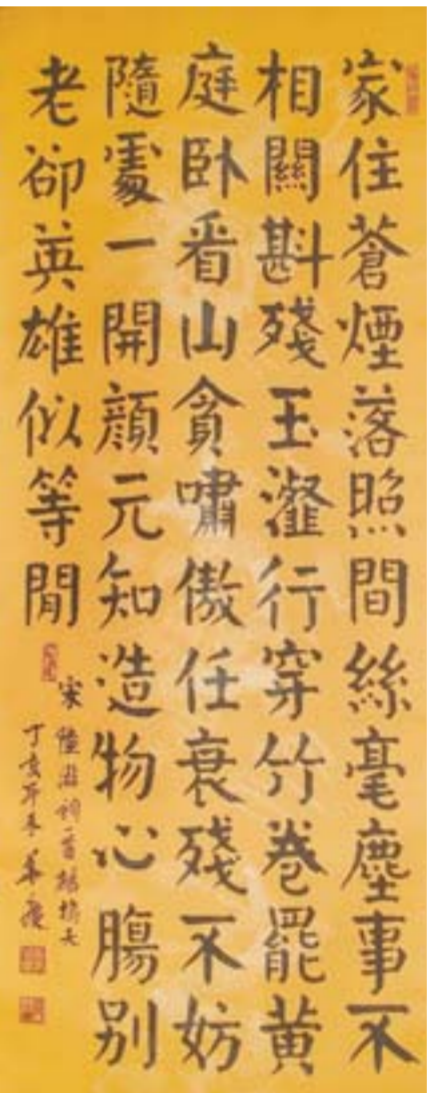 家住蒼煙落照間絲毫塵事不
相關斟殘玉瀣行穿竹卷罷黄
庭卧看山貪嘯傲任衰殘不妨
隨處一開顔元知造物心腸别
老卻英雄似等閒
宋陸游詞一首
丁亥年冬